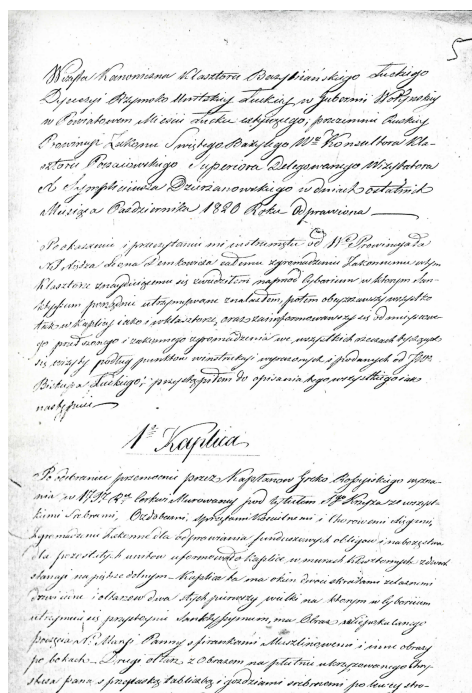 5
Wizyta Kanoniczna Klasztoru Bazyliańskiego Łuckiego
Dyecezyi Rzymsko Unitskiey Łuckiey w Gubernii Wołyńskiey
w Powiatowem Mieście Łucku sytuiącego, przezemnie Ruskiey
Prowincyi Zakonu Świętego Bazylego Wgo Konsultora Kla-
sztoru Poczaiowskiego Superiora Delegowanego Wizytatora
X Sympliciusza Dzierzanowskiego w dniach ostatnich
Miesiąca Października 1820 Roku Odprawiona
Po okazaniu i przeczytaniu mi instrumentu od Wo Prowincyała
całemu zgromadzeniu Zakonnemu w tym
Klasztorze znayduiącemu się zwiedziłem naprzód Cyborium w ktorem San-
ktyssimum porządnie utrzymywane znalazłem, potem obeyrzawszy wszystko
tak w Kaplicy iako i w klasztorze, oraz zainformowawszy się od mieysco-
wego przełożonego i zakonnego zgromadzenia we wszystkich rzeczach tyczących
się wizyty podług punktów w instrukcyi wyrażonych i podanych od JWo
Biskupa Łuckiego, przystąpiłem do opisania tego wszystkiego iako
następuie
1o Kaplica
Po odebraniu przemocnie przez Kapłanow Greko Rossyiskiego wyzna-
nia w Cerkwi Murowaney pod tytułem Sgo Krzyża ze wszyst-
kiemi Srebrami, Ozdobami, sprzętami i Cerkownemi
zgromadzenie Zakonne dla odprawiania funduszowych obligow i nabożeństwa
dla pozostałych unitow uformowało kaplicę w murach klasztornych z dwoch
stancyi na piętrze dolnym. Kaplica ta ma okien dwoie z kratami żelaznemi
drzwi iedne i ołtarzow dwa z tych pierwszy wielki na ktorym w Cyborium
utrzymuie się przystoynie Sanktyssimum, ma Obraz niepokalanego
poczęcia N. Maryi Panny z firankami Muszlinowemi i inne obrazy
po bokach. Drugi ołtarz z obrazem na płótnie ukrzyżowanego Chry-
stusa pana z przepaską tabliczką i goździami srebrnemi po lewey stro-